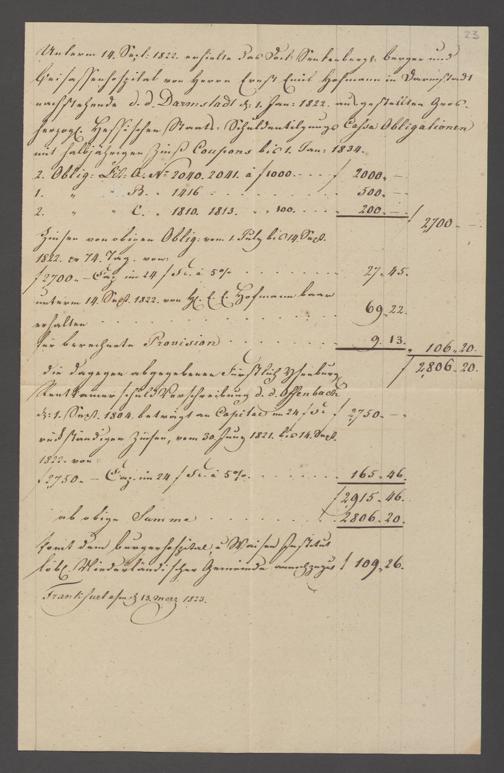 23
Unterm 14. Sept: 1822. erhielte das Doct. Senkenbergs. Bürger und
Beisassenhospital von Herrn Ernst Emil Hofmann in Darmstadt
nachstehende d. d. Darmstadt d. 1. Jan: 1822. ausgestellten Gros-
herzogl. Hessischen Staats-Schuldentilgungs Casse Obligationen
mit halbjährigen Zins Coupons bis 1. Jan: 1834.
2. Oblig: Lit. A. No 2040. 2041. à f 1000 . . . . f 2000. —
1. " " B. " 1416 . . . . . . 500. —
2. " " C. " 1810. 1813. . . 100. . . . . 200. — f 2700 —
Zinsen von obigen Oblig: vom 1 July bis 14. Sept.
1822. 74. Tag. von:
f 2700 — Cap. im 24 f Fs. à 5% . . . . . . . 27. 45.
unterm 14. Sept. 1822. von H. E. E. Hofmann baar
erhalten . . . . . . . . . . 69. 22.
für berechnete Provision . . . . . . . 9. 13. " 106. 20.
f 2,806. 20.
die dagegen abgegebene Fürstlich Ysenburg.
Rentkammer Schuld Verschreibung d. d. Offenbach
d. 1. Sept. 1804. beträgt an Capital im 24 f Fs. f 2750. —
rückständigen Zinsen, vom 30 Juny 1821. bis 14. Sept.
1822. von
f 2750. — Cap. im 24 f Fs. à 5% . . . . . 165. 46.
f 2915. 46.
ab obige Summe . . . . . . 2806. 20.
komt dem Bürgerhospital, u Waisen Institut
löbl. Niederländischer Gemeinde f 109. 26.
Frankfurt a/m d. 13. März 1823.